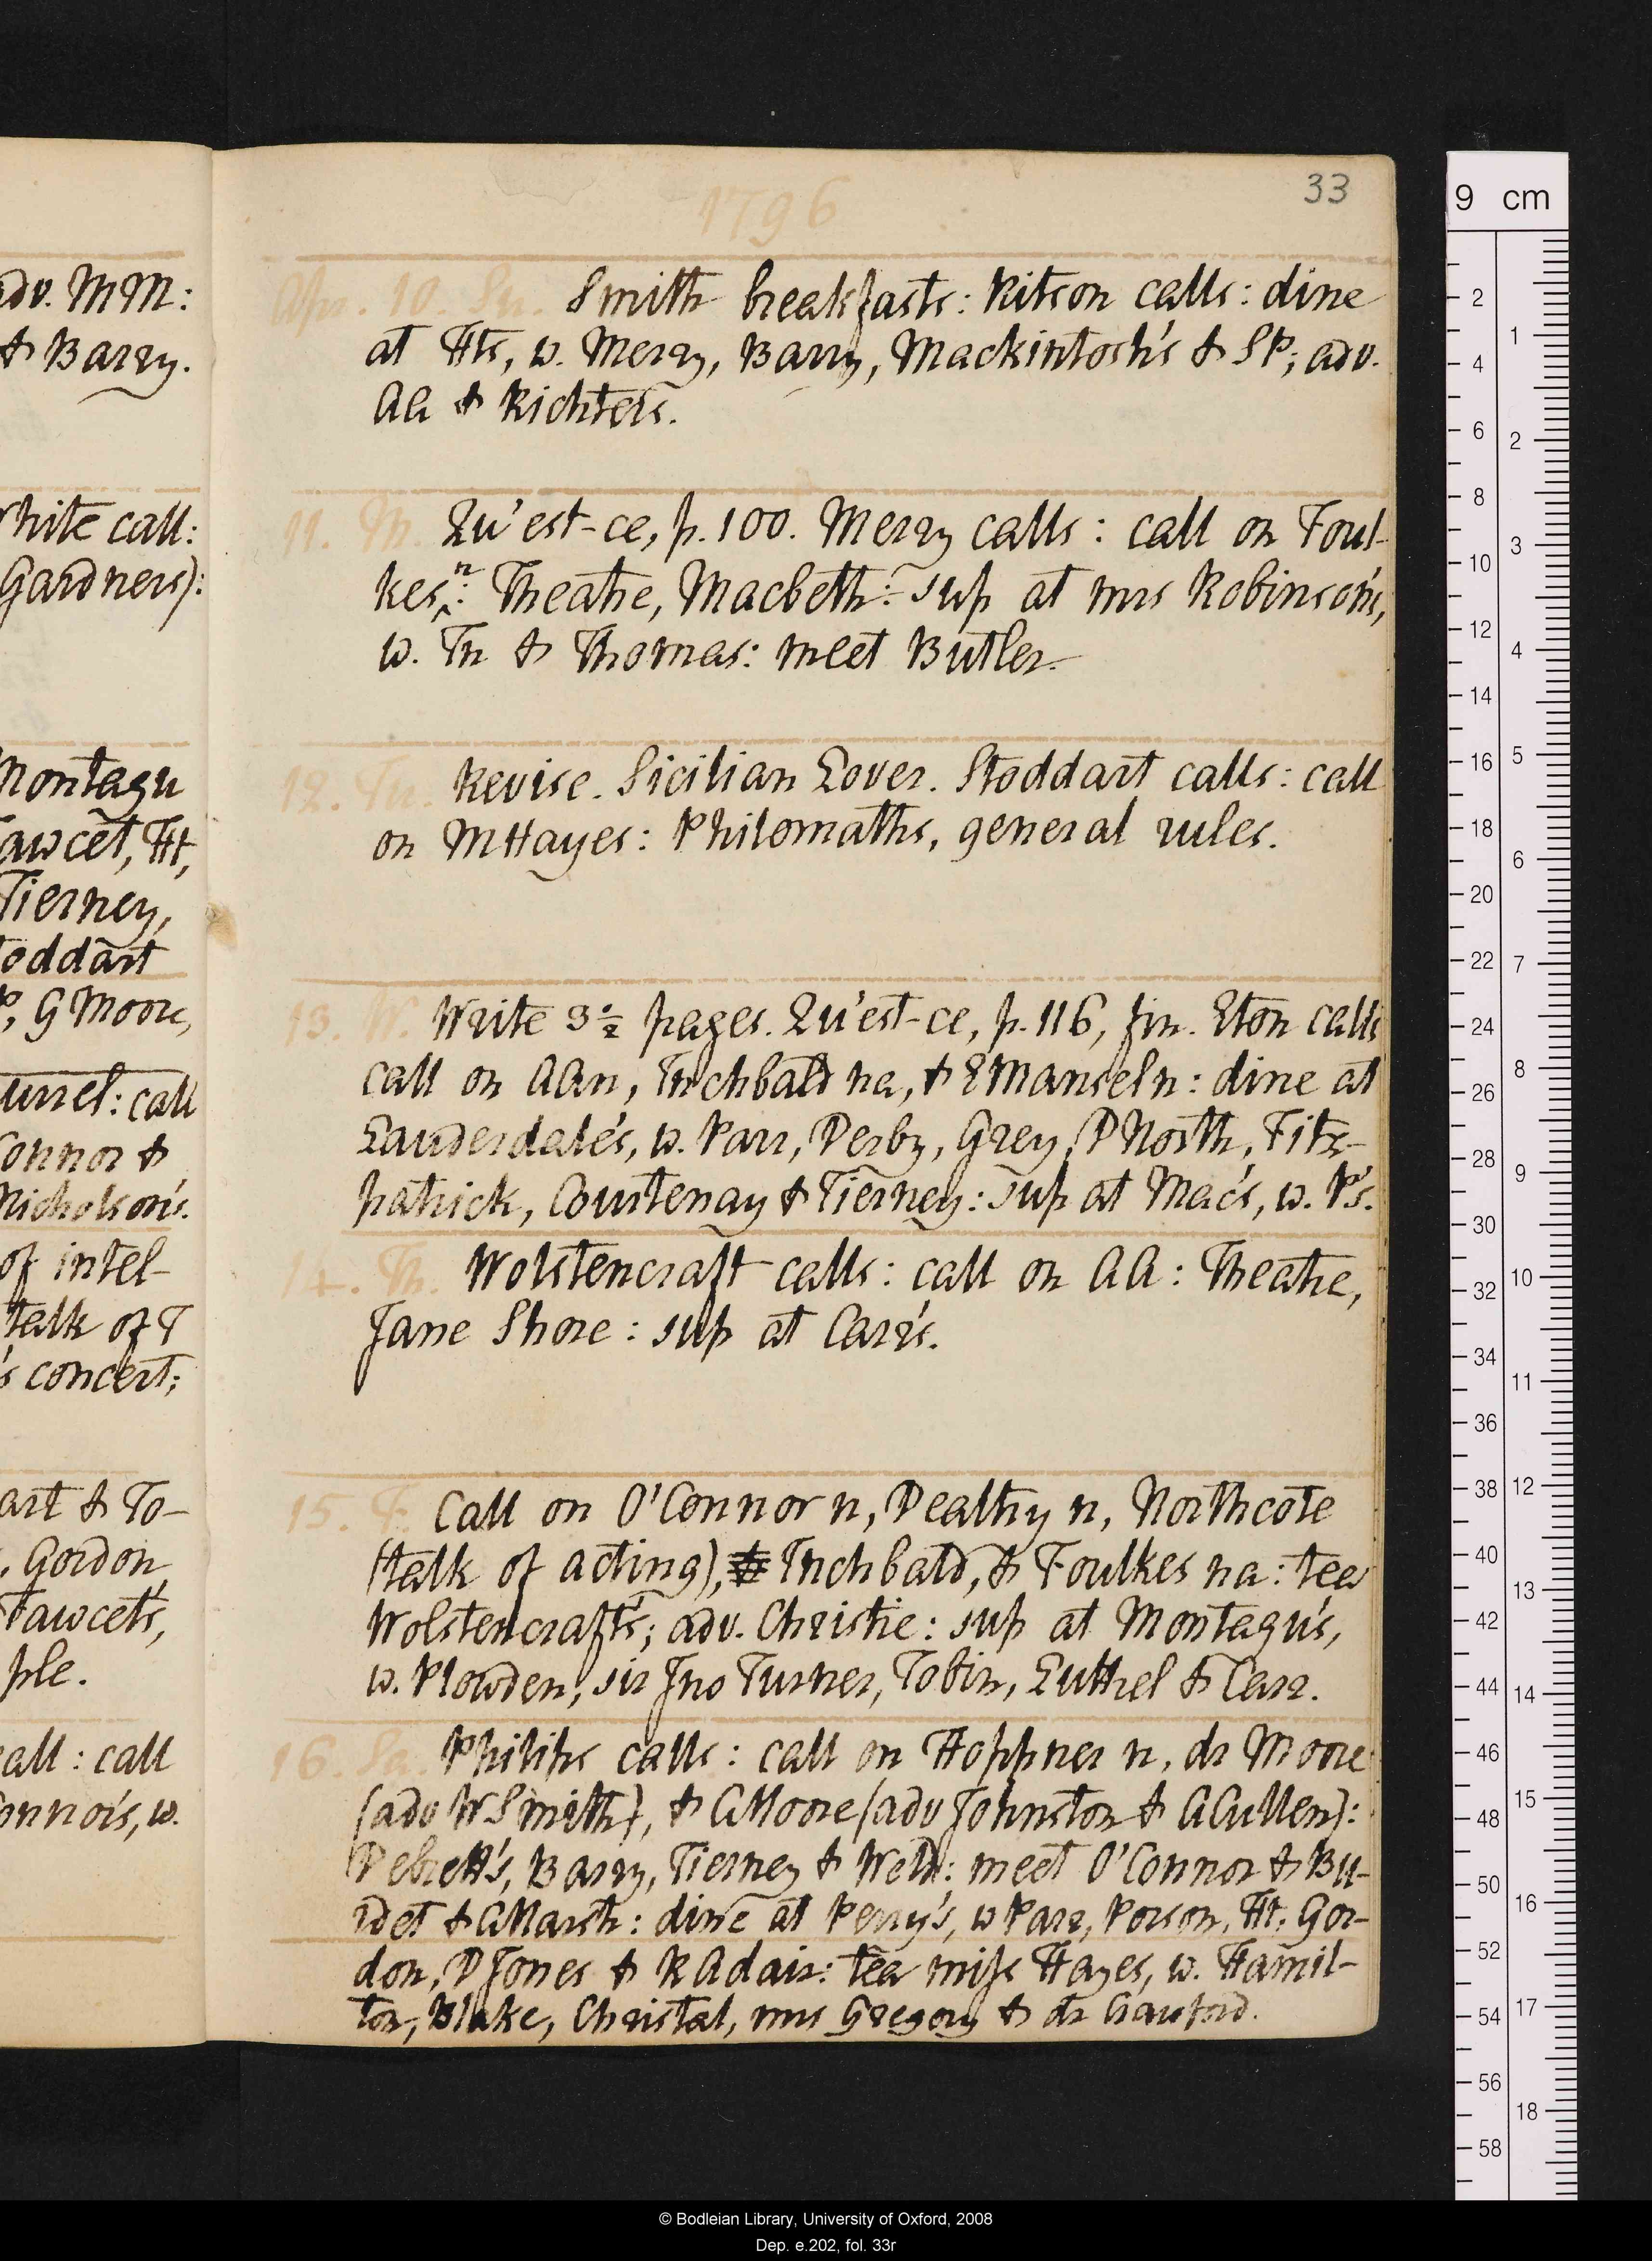 adv. MM:
& Barry.
White call:
Gardners):
Montagu
Fawcet, Ht,
Tierney,
toddart
P, G Moore,
urrel: call
onnor &
Nicholson's.
of intel-
talk of T
's concert;
art & To-
, Gordon,
Fawcet's,
ple.
call : call
onnor's, w.
1796
33
Apr. 10. Su. Smith breakfasts: Ritson calls: dine
at Ht's, w. Merry, Barry, Mackintosh's & SP; adv.
AA & Richters.
11. M. Qu'est-ce, p. 100. Merry calls : call on Foul-
kes n: Theatre, Macbeth: sup at mrs Robinson's,
w. Tn & Thomas: meet Butler.
12. Tu. Revise. Sicilian Lover. Stoddart calls: call
on MHayes: Philomaths, general rules.
13. W. Write 3 1/2 pages. Qu'est-ce, p. 116, fin. Eton calls
call on AAn, Inchbald na, & EMansel n: dine at
Lauderdale's, w. Parr, Derby, Grey, DNorth, Fitz-
patrick, Courtenay & Tierney: sup at Mac's, w. P's.
14. Th. Wolstencraft calls: call on AA: Theatre,
Jane Shore: sup at Carr's.
15. F. Call on O'Connor n, Dealtry n, Northcote
(talk of acting), & Inchbald, & Foulkes na: tea
Wolstencraft's; adv. Christie: sup at Montagu's,
w. Plowden, sir Jno Turner, Tobin, Luttrel & Carr.
16. Sa. Philips calls: call on Hoppner n, dr Moore
(adv WSmith), & GMoore (adv Johnston & GCullen):
Debrett's, Barry, Tierney & Weld: meet O'Connor & Bu-
rdet & GMarsh: dine at Perry's, w Parr, Porson, Ht, Gor-
don, DJones & RAdair: tea miss Hayes, w. Hamil-
ton, Blake, Christal, mrs Gregory & dr Crauford.
9 cm
2
4
6
8
10
12
14
16
18
20
22
24
26
28
30
32
34
36
38
40
42
44
46
48
50
52
54
56
58
1
2
3
4
5
6
7
8
9
10
11
12
13
14
15
16
17
18
© Bodleian Library, University of Oxford, 2008
Dep. e.202, fol. 33r